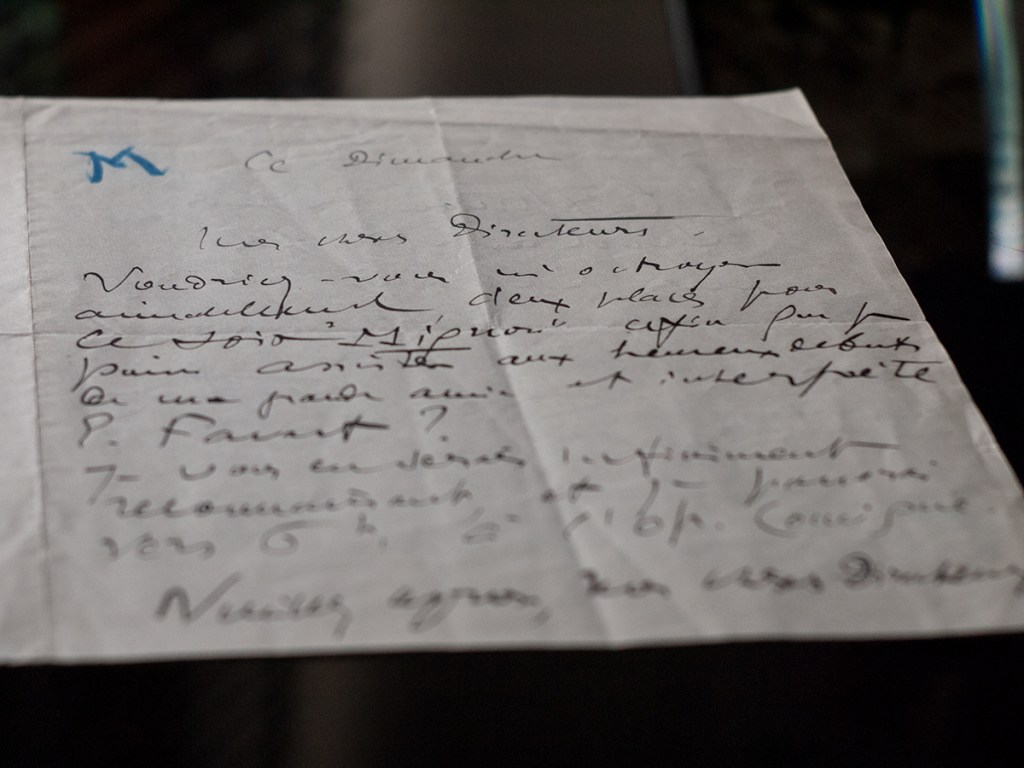 M Ce Dimanche
Mes chers Directeurs.
Voudriez-vous m'octroyer
aimablement, deux places pour
ce soir "Mignon" afin que je
puisse assister aux heureux débuts
de ma grande amie et interprète
P. Favart ?
Je vous en serais infiniment
reconnaissant, et je passerai
vers 6 h, à l'Op. Comique.
Veuillez agréer, mes chers Directeurs